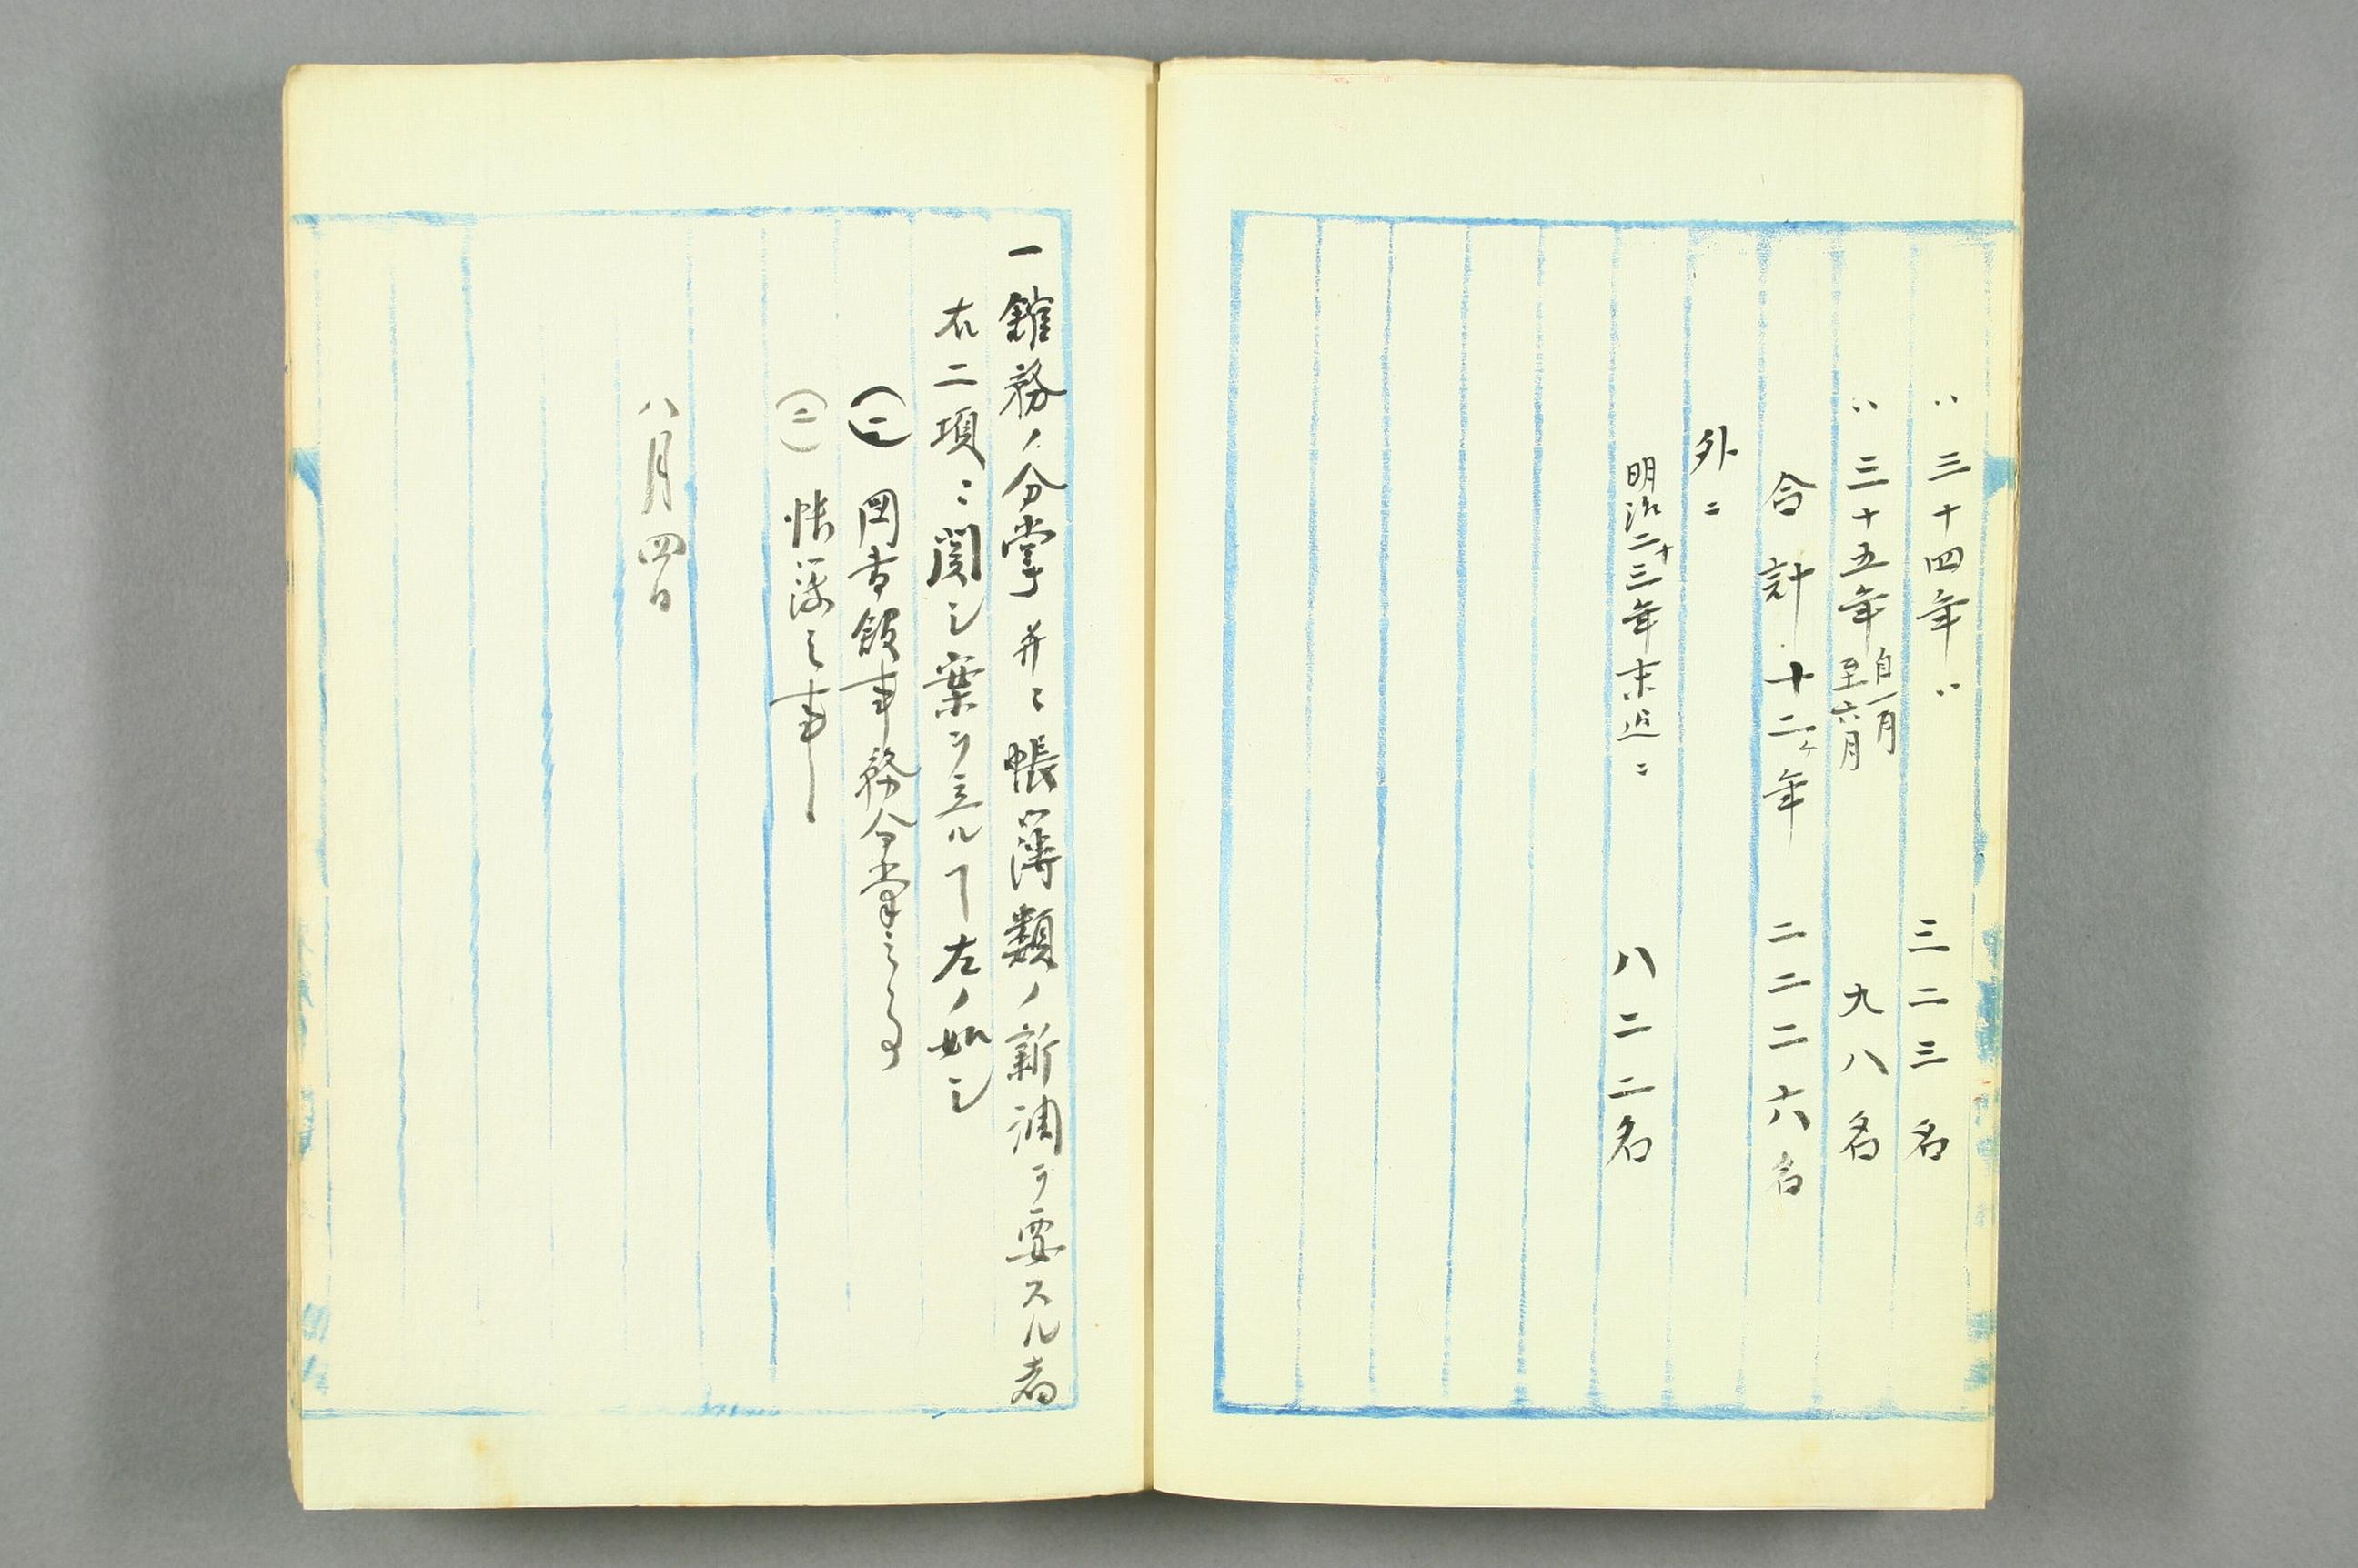 〃三十四年〃 三二三名
〃三十五年自一月至六月 九八名
合計十二ケ年 二二二六名
外ニ
明治二十三年末迄ニ 八二二名
一舘務ノ分掌并ニ帳簿類ノ新調ヲ要スル者
右二項ニ関シ案ヲ立ルヿ左ノ如シ
(一) 図書館事務分掌之事
(二) 帳簿之事
八月四日